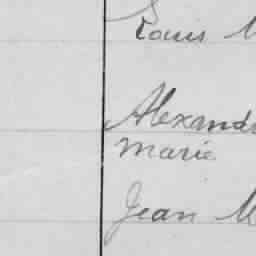 Louis M
Alexandr
Marie
Jean M